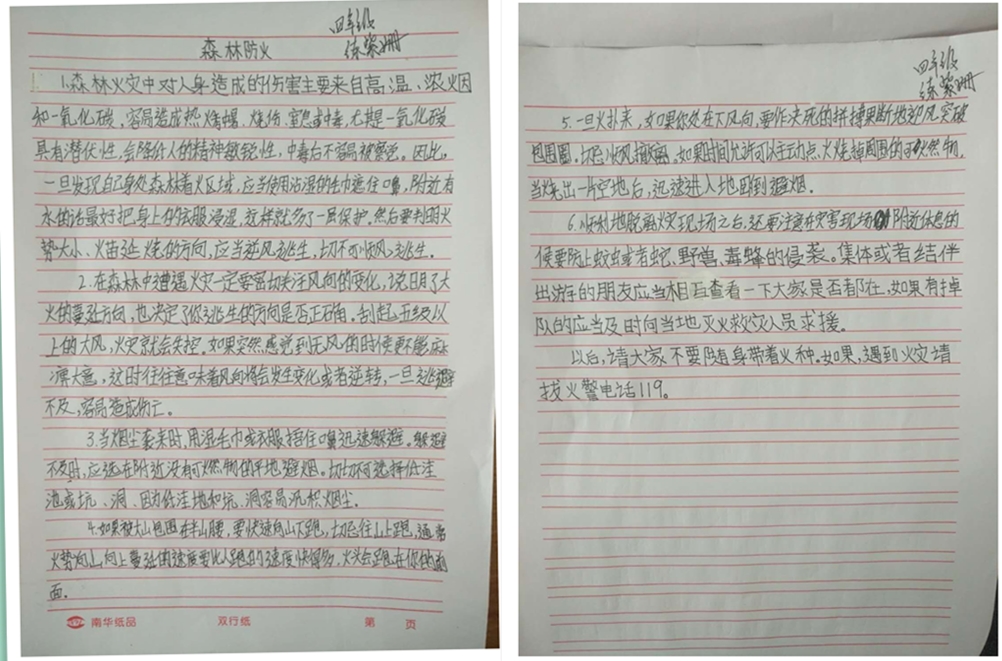 四年级
练紫珊
森林防火
1.森林火灾中对人身造成的伤害主要来自高温、浓烟
和一氧化碳,容易造成热烤、烧伤、窒息或中毒,尤其是一氧化碳
具有潜伏性,会降低人的精神敏锐性,中毒后不容易被察觉。因此,
一旦发现自己身处森林着火区域,应当使用沾湿的毛巾遮住口鼻,附近有
水的话最好把身上的衣服浸湿,这样就多了一层保护。然后要判明火
势大小、火苗延烧的方向,应当逆风逃生,切不可顺风逃生。
2.在森林中遭遇火灾一定要密切关注风向的变化,说明了大
火的蔓延方向,也决定了你逃生的方向是否正确。刮起五级以
上的大风,火灾就会失控。如果突然感觉到无风的时候更不能麻
痹大意,这时往往意味着风向将会发生变化或者逆转,一旦逃避
不及,容易造成伤亡。
3.当烟尘袭来时,用湿毛巾或衣服捂住口鼻迅速躲避。躲避
不及时,应选在附近没有可燃物的平地避烟。切切不可选择低洼
地或坑、洞,因为低洼地和坑、洞容易沉积烟尘。
4.如果被大山包围在半山腰,要快速向山下跑,切忌往山上跑,通常
火势向山上蔓延的速度要比人跑的速度快得多,火会跑在你的前
面。
南华纸品 双行纸 第 页
四年级
练紫珊
5.一旦火扑来,如果你处在下风向,要作决死的拼搏果断地迎风突破
包围圈,切忌顺风撤离,如果时间允许可以主动点火烧掉周围的可燃物,
当烧出一片空地后,迅速进入地卧倒避烟。
6.顺利地脱离火灾现场之后,还要注意在灾害现场附近休息的
候要防止蚊虫或者蛇、野兽、毒蜂的侵袭。集体或者结伴
出游的朋友应当相互查看一下大家是否都在,如果有掉
队的应当及时向当地灭火救灾人员求援。
以后,请大家不要随身带着火种,如果,遇到火灾请
拔火警电话119。